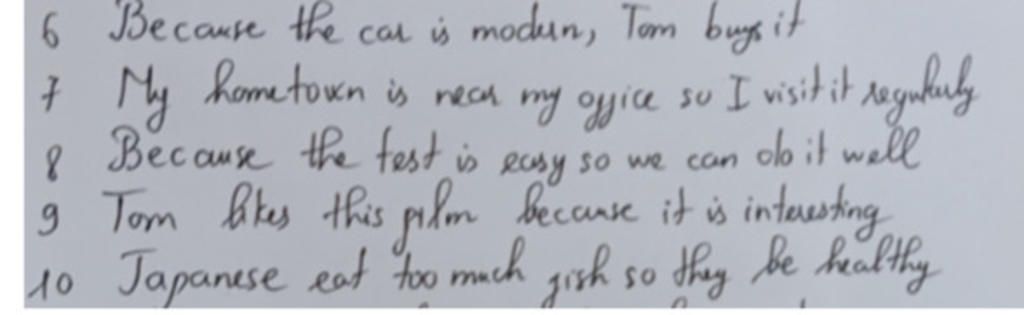 6 Because the car is modern, Tom buys it
7 My hometown is near my office so I visit it regularly
8 Because the test is easy so we can do it well
9 Tom likes this film because it is interesting
10 Japanese eat too much fish so they be healthy